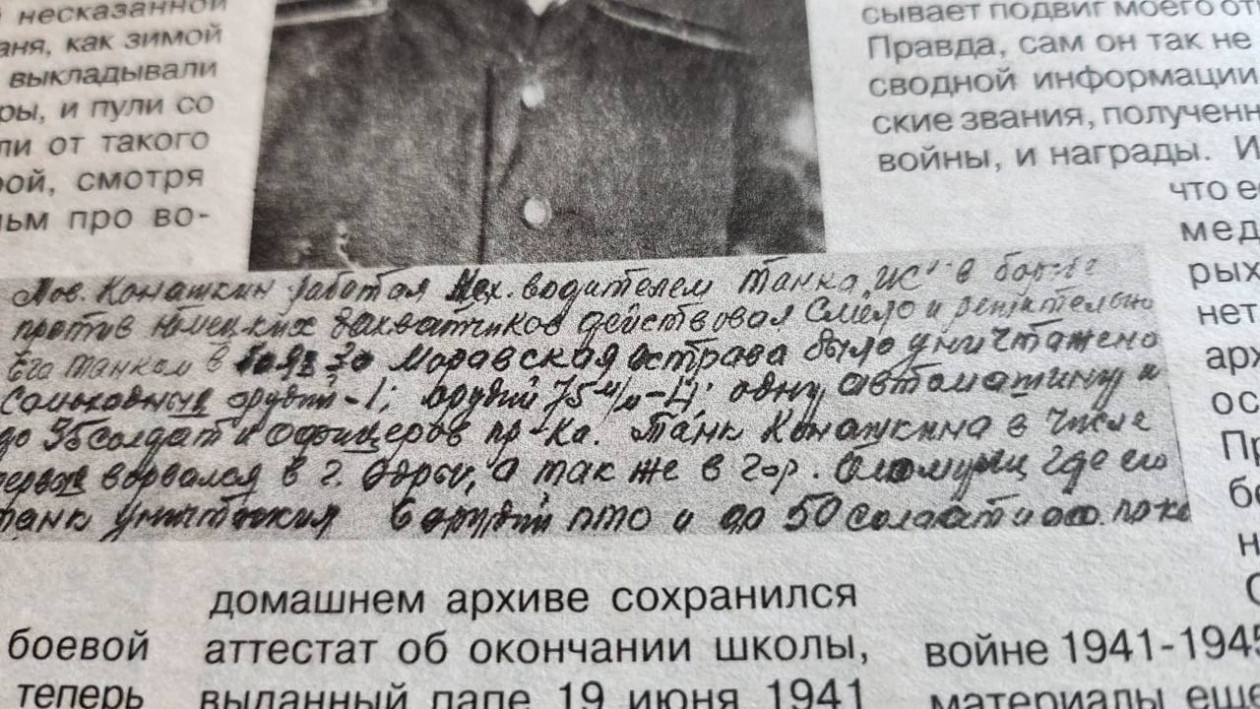 несказанной
аня, как зимой
выкладывали
ры, и пули со
ли от такого
рой, смотря
льм про во-
сывает подвиг моего от
Правда, сам он так не
сводной информации
ские звания, полученн
войны, и награды. И
что е
мед
рых
нет
арх
ос
Пр
бо
н
Тов. Конашкин работая Мех. водителем танка "ИС" в
против немецких захватчиков действовал Смело и решительно
Его танком в за Моравская острава было уничтажено
Самоходных орудий - 1; орудий 75 м/м - 4; одну автомашину и
до 35 солдат и офицеров пр-ка. Танк Конашкина в числе
первых ворвался в г. а так же в гор. Оломуц где его
танк 6 орудий ПТО и до 50 солдат и
домашнем архиве сохранился
боевой
аттестат об окончании школы,
теперь
выданный папе 19 июня 1941
войне 1941-1945
материалы еще